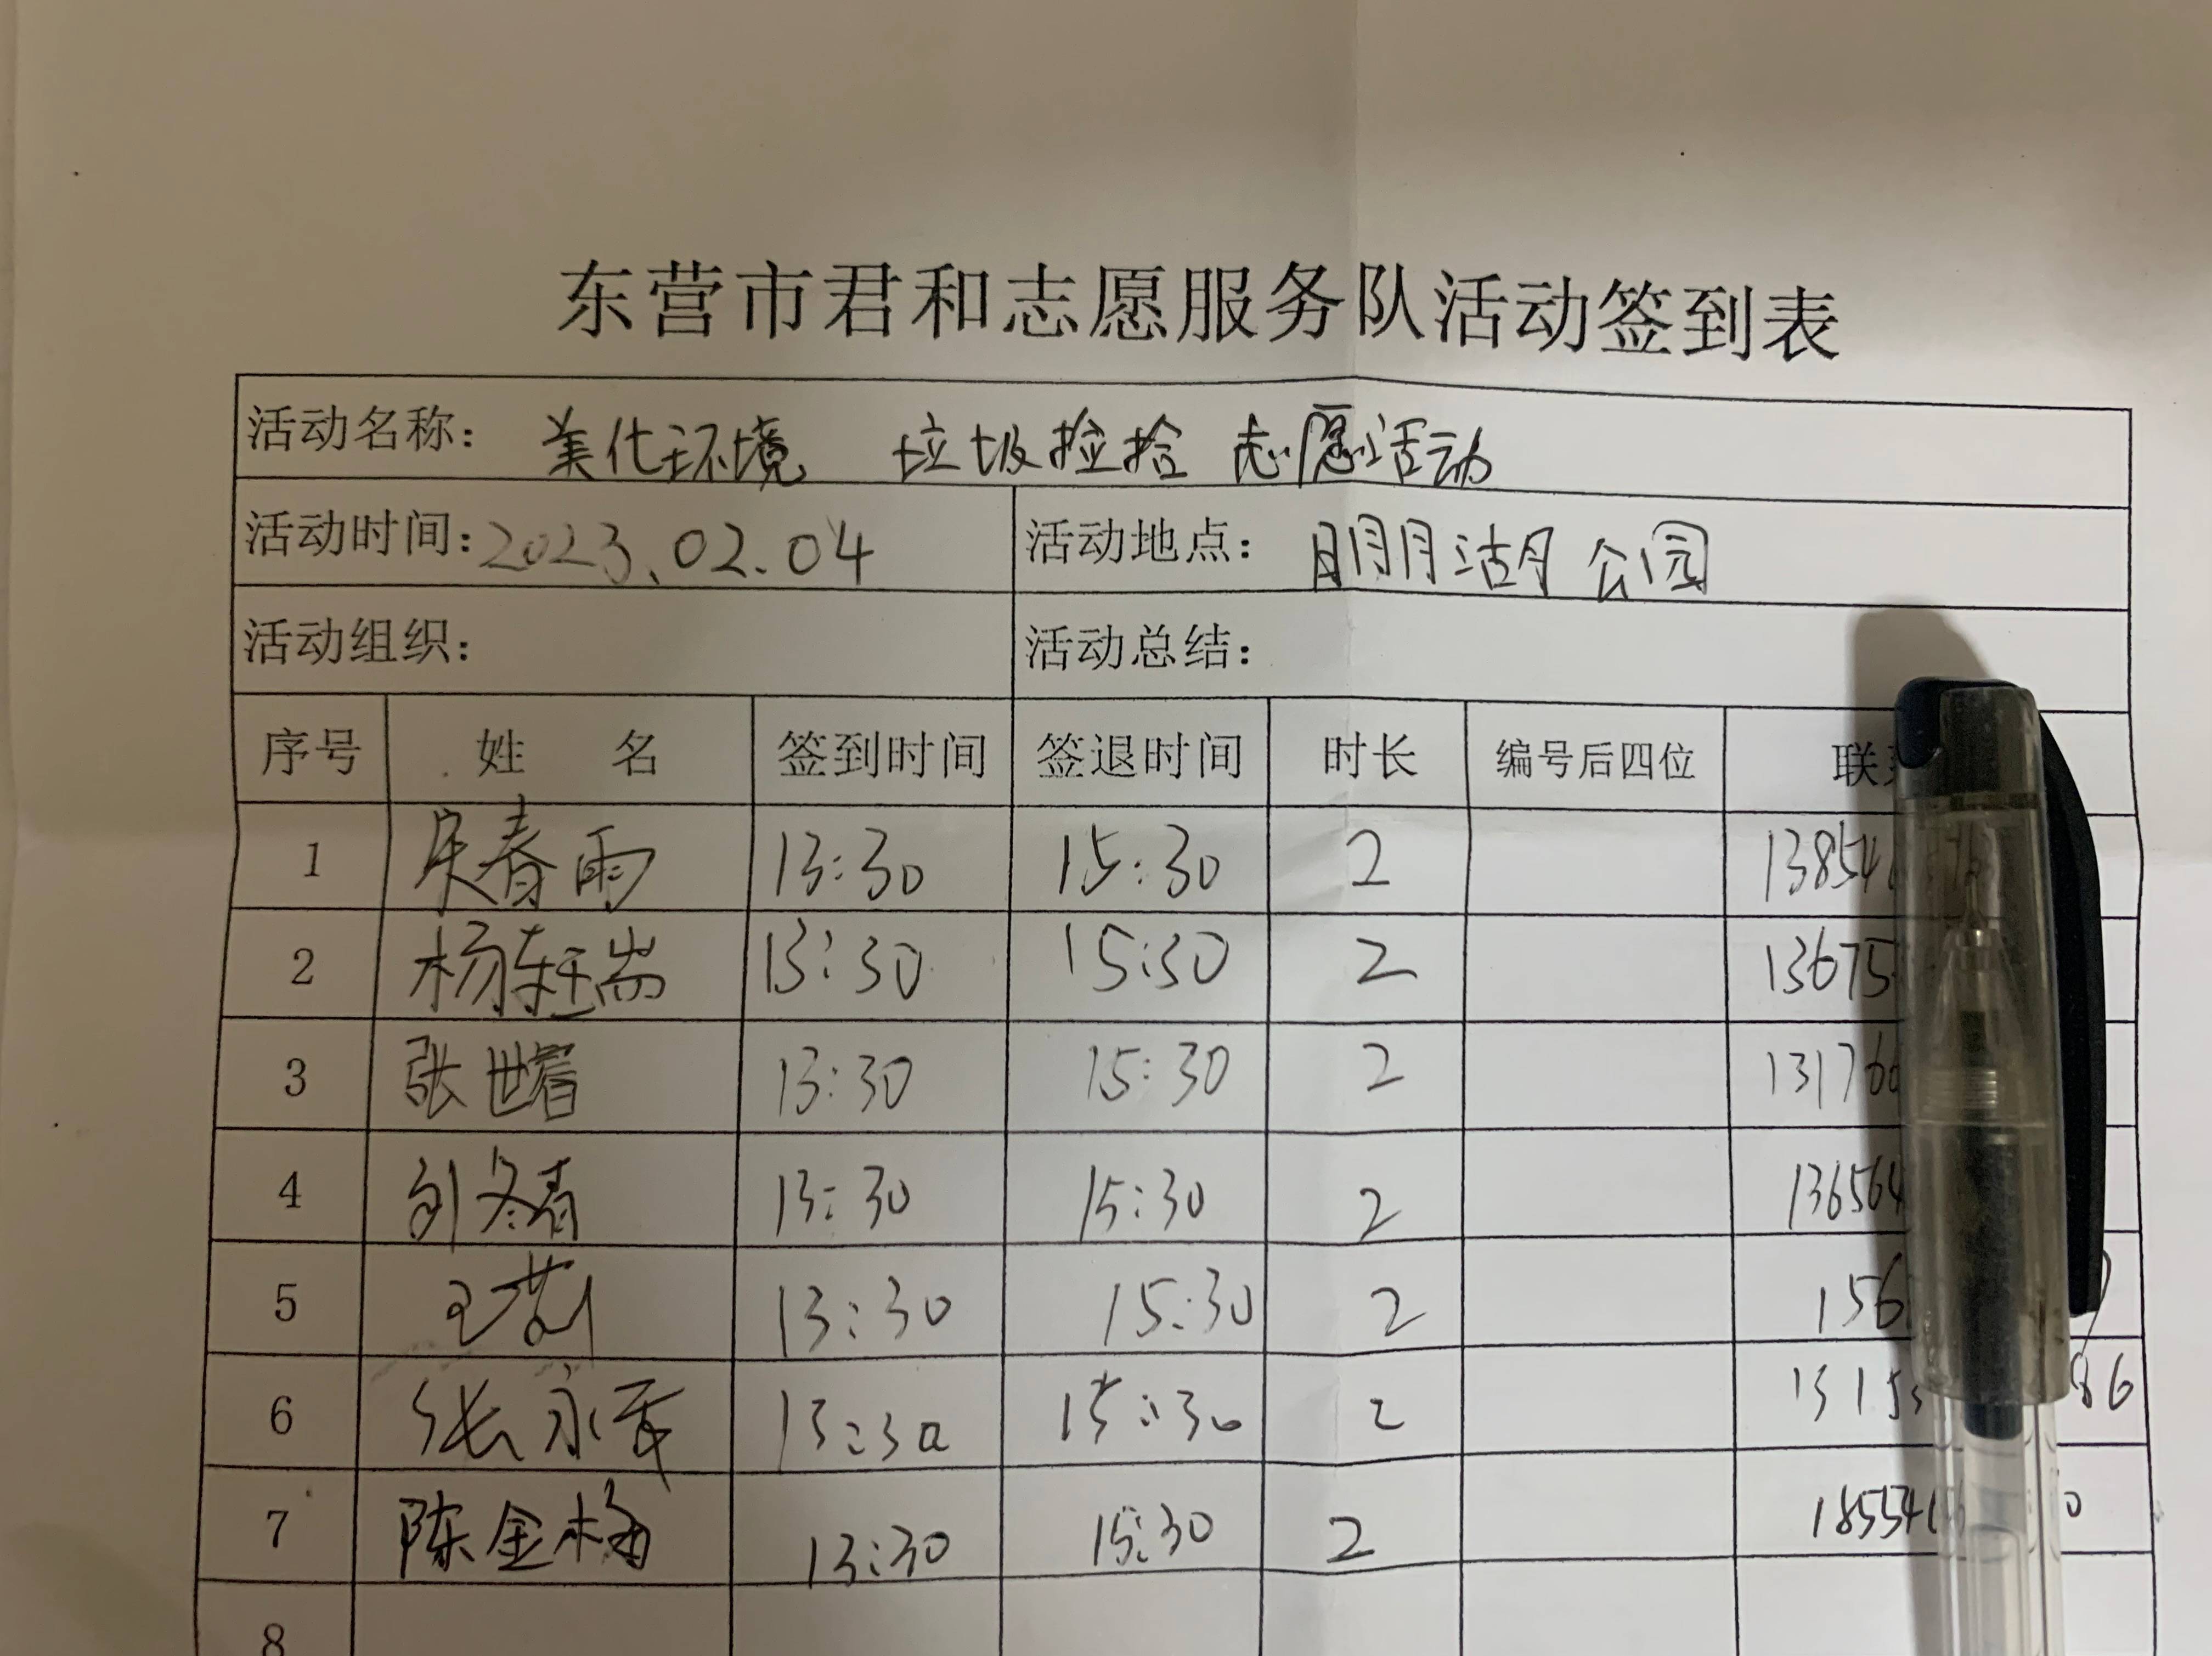 东营市君和志愿服务队活动签到表
活动名称: 美化环境 垃圾捡拾 志愿活动
活动时间: 2023.02.04 活动地点: 明月湖公园
活动组织: 活动总结:
序号 姓名 签到时间 签退时间 时长 编号后四位 联
1 宋春雨 13:30 15:30 2 13854
2 杨轩瑞 13:30 15:30 2 13675
3 张世 13:30 15:30 2 13176
4 刘冬春 13:30 15:30 2 13656
5 王 13:30 15:30 2 156
6 张永 13:30 15:30 2 13153 86
7 陈金梅 13:30 15:30 2 18554 0
8